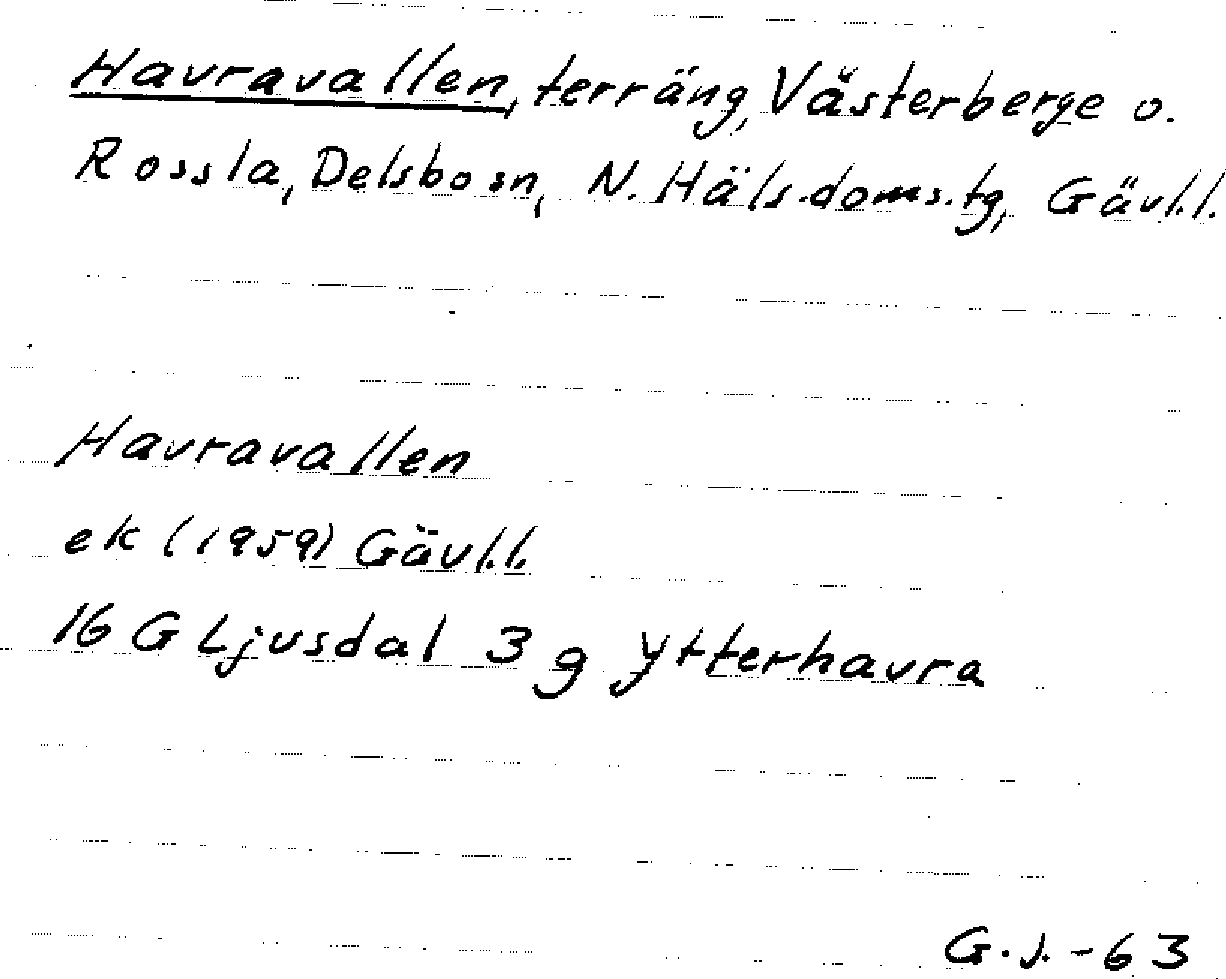 Havravallen, terräng, Västerberge o.
Rossla, Delsbo sn, N. Häls. doms. tg, Gävl.l.
Havravallen
ek (1959) Gävl.l.
16 G Ljusdal 3 g Ytterhavra
G.J. -63